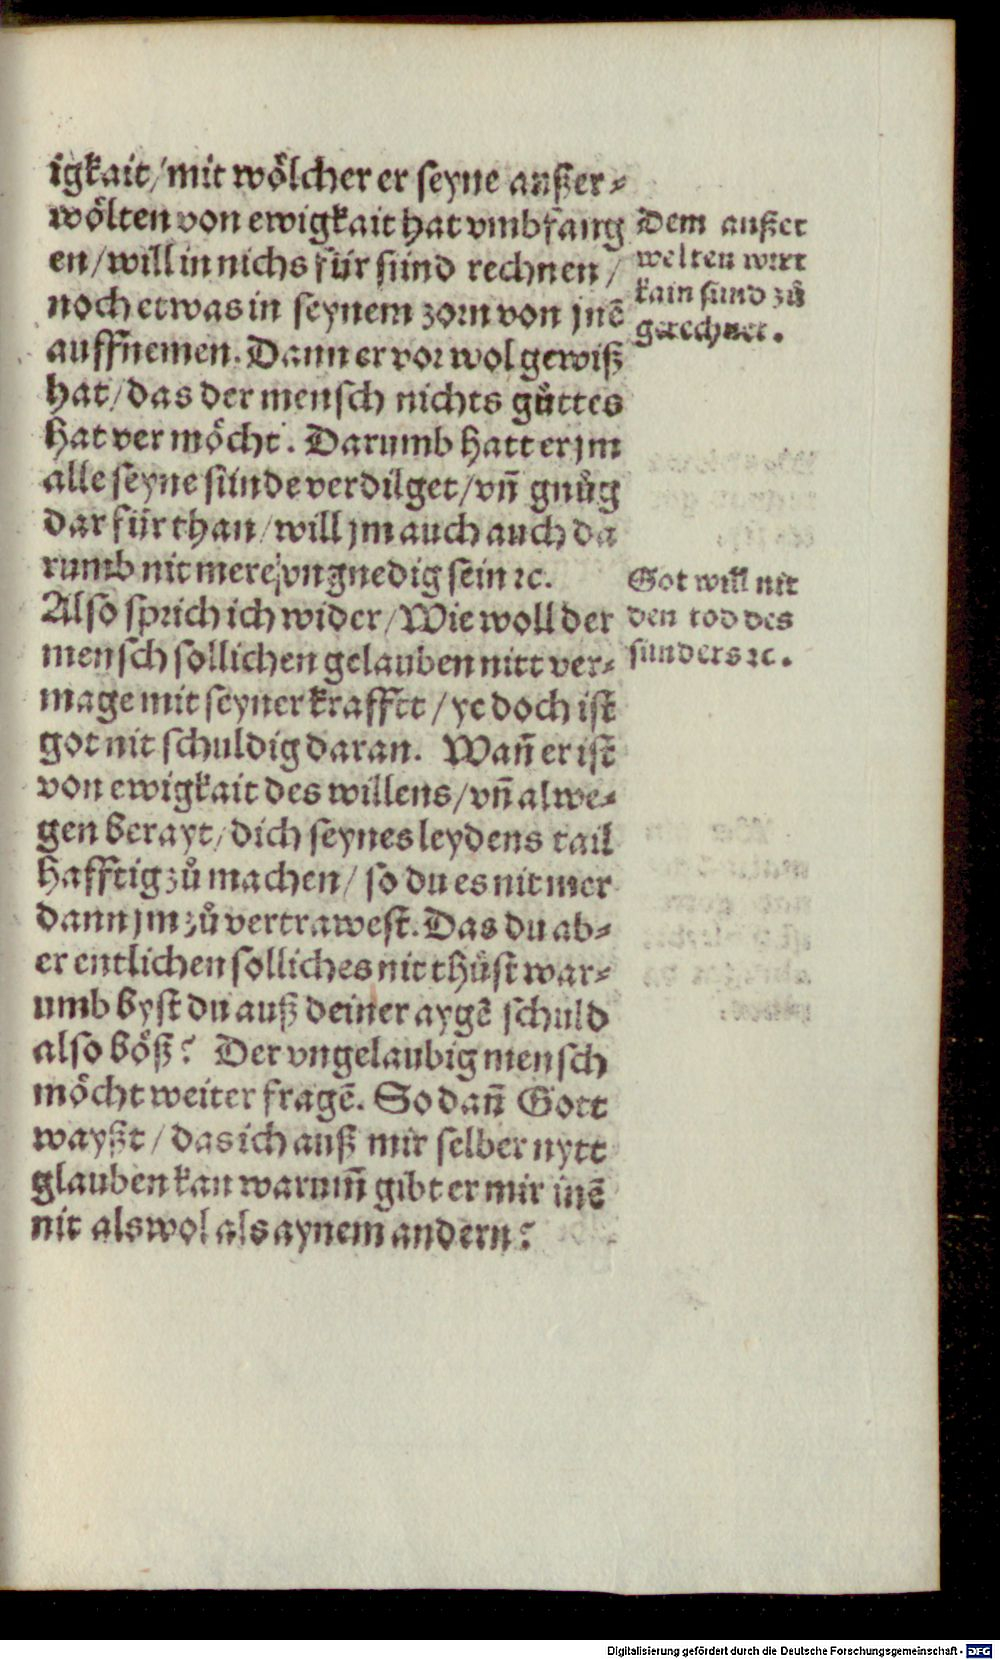 igkait/mit wölcher er seyne außer⸗
wölten von ewigkait hat vmbfang
en/will in nichs für sünd rechnen/
noch etwas in seynem zorn von jnē
auffnemen. Dann er vor wol gewiß
hat/das der mensch nichts gůttes
hat ver möcht. Darumb hatt er jm
alle seyne sünde verdilget/vñ gnůg
dar für than/will jm auch auch da
rumb nit mere vngnedig sein ⁊c.
Also sprich ich wider/Wie woll der
mensch sollichen gelauben nitt ver⸗
mage mit seyner krafftt/ye doch ist
got nit schuldig daran. Wañ er ist
von ewigkait des willens/vñ alwe⸗
gen berayt/dich seynes leydens tail
hafftig zů machen/so du es nit mer
dann jm zů vertrawest. Das du ab⸗
er entlichen solliches nit thůst war⸗
umb byst du auß deiner aygē schuld
also böß? Der vngelaubig mensch
möcht weiter fragē. So dañ Gott
wayßt/das ich auß mir selber nytt
glauben kan warum̃ gibt er mir inē
nit als wol als aynem andern?
Dem außer
welten wirt
kain sund zů
gerechnet.
Got will nit
den tod des
sunders ⁊c.
Digitalisierung gefördert durch die Deutsche Forschungsgemeinschaft - DFG